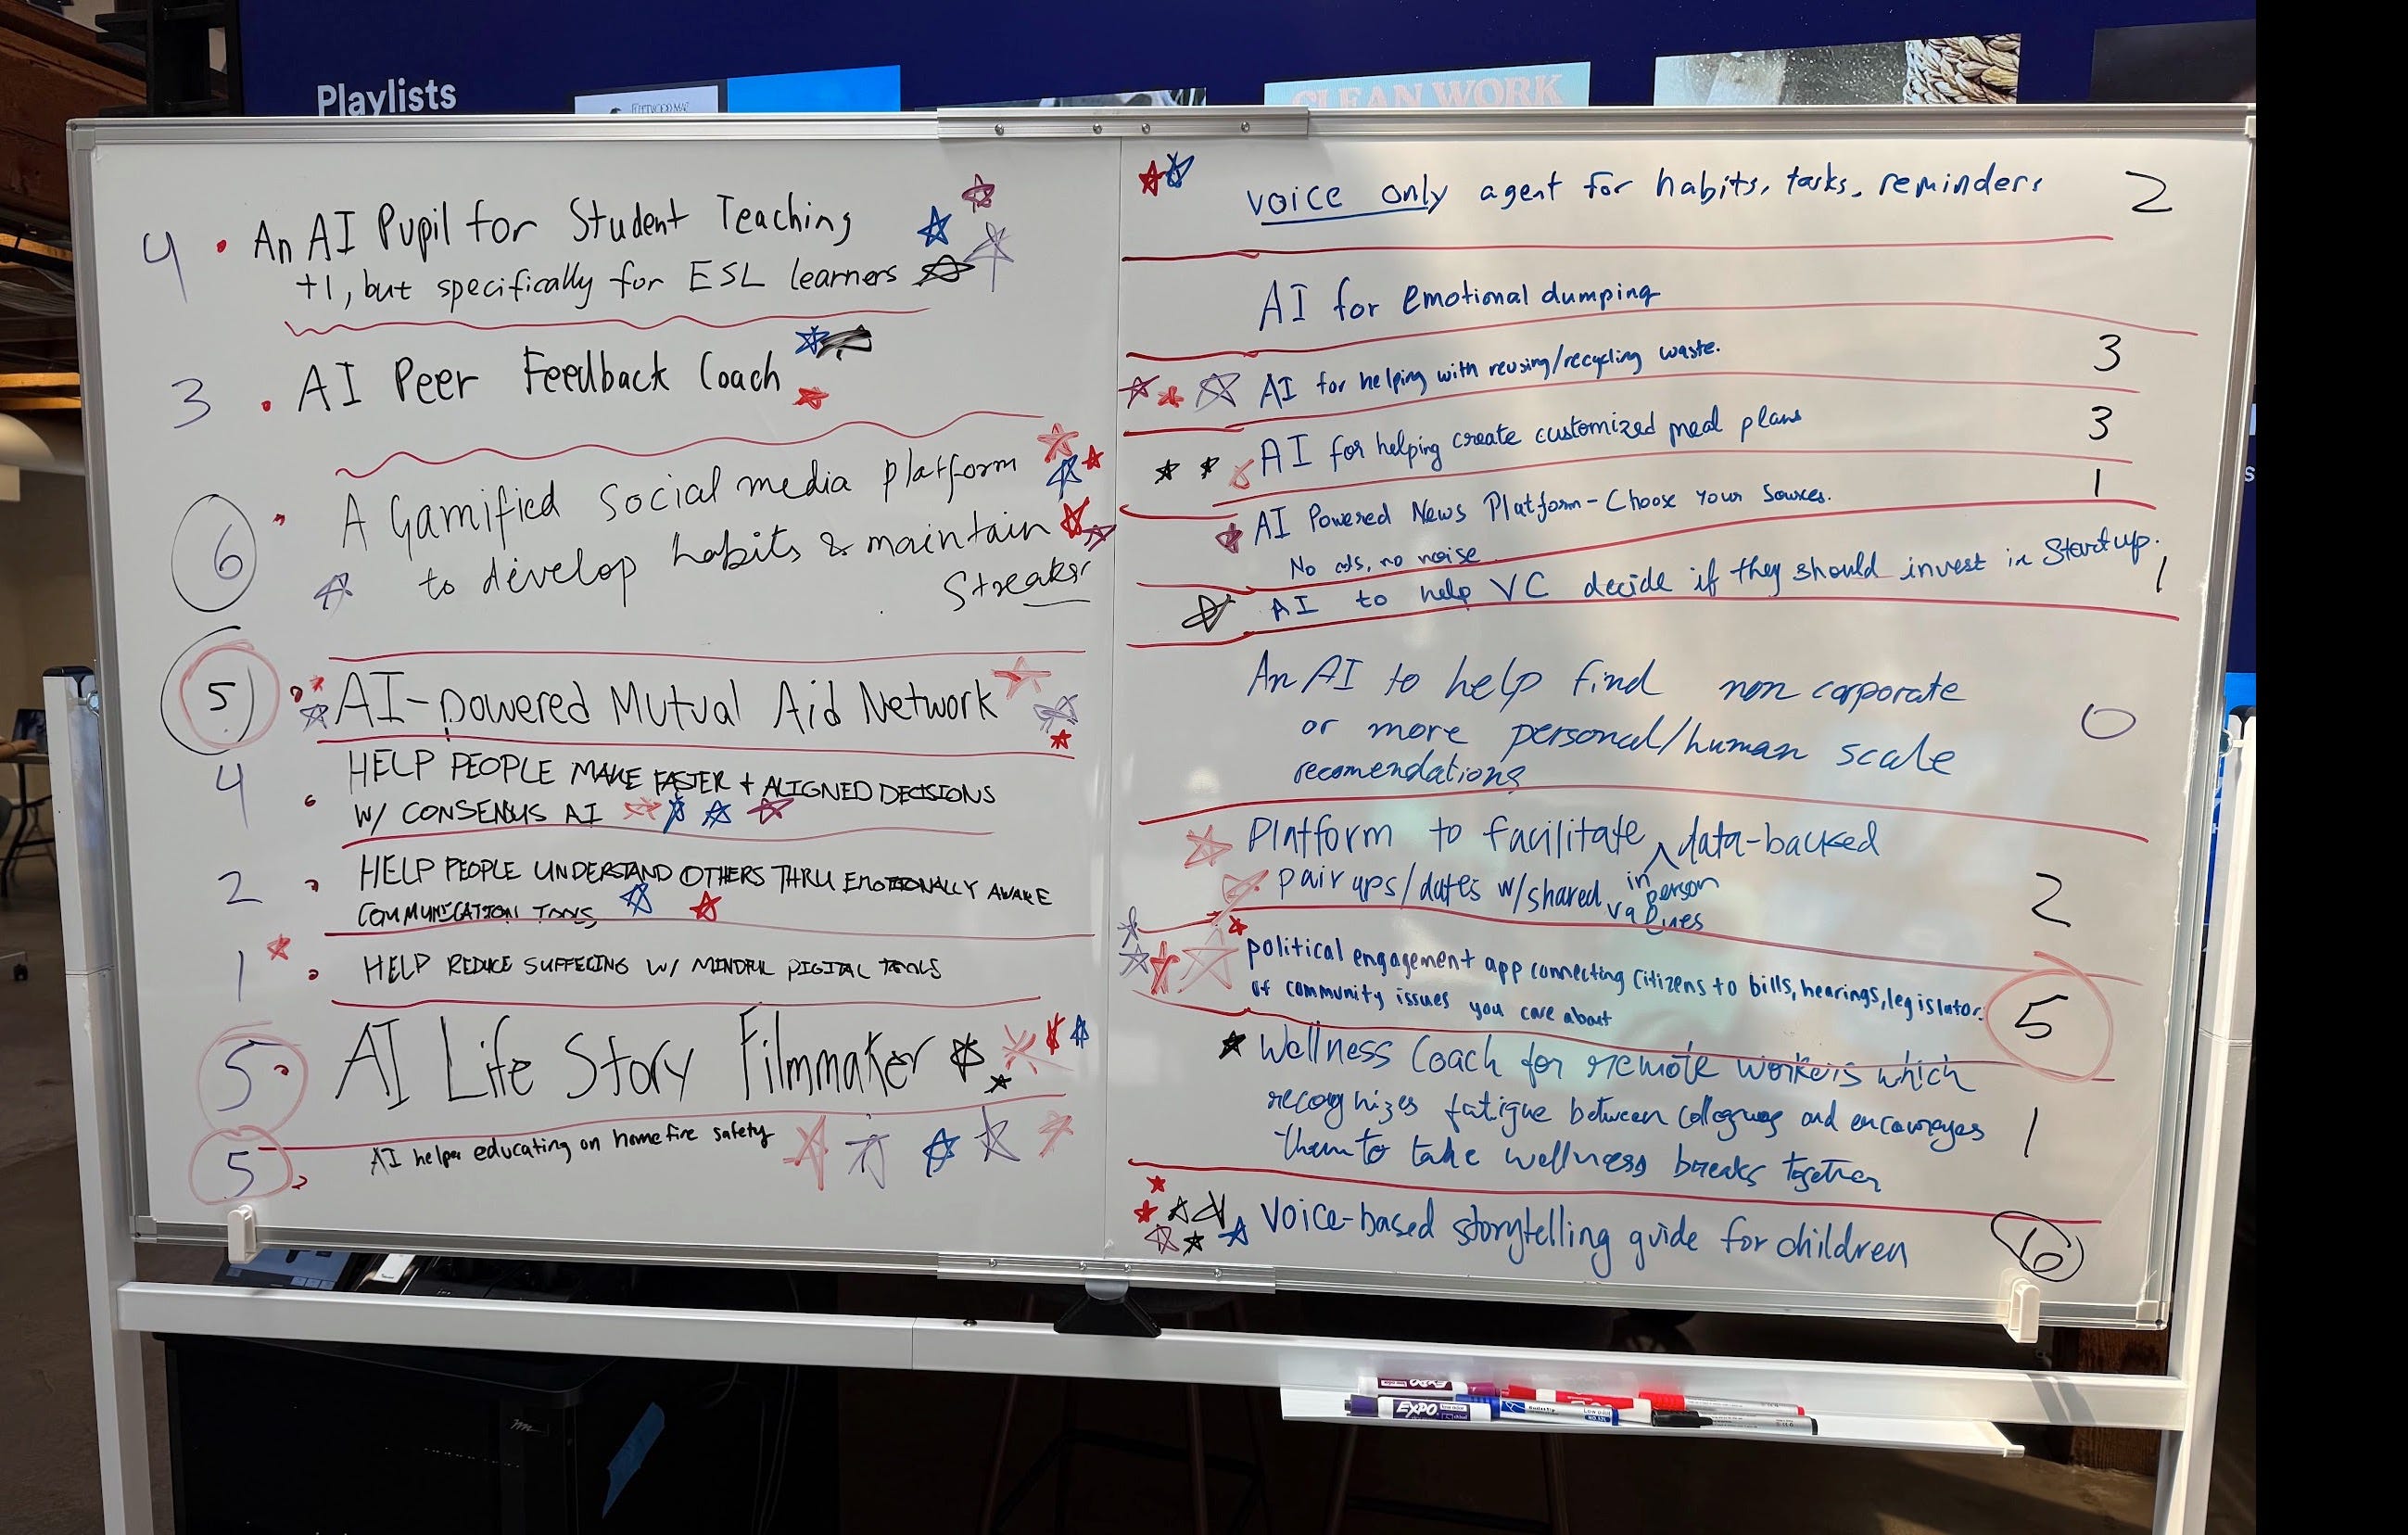 Playlists
FLEETWOOD MAC
CLEAN WORK
4 • An AI Pupil for Student Teaching
+1, but specifically for ESL learners
3 • AI Peer Feedback Coach
6 • A Gamified social media platform
to develop habits & maintain
streaks
5 • AI-powered Mutual Aid Network
4 • HELP PEOPLE MAKE FASTER + ALIGNED DECISIONS
W/ CONSENSUS AI
2 • HELP PEOPLE UNDERSTAND OTHERS THRU EMOTIONALLY AWARE
COMMUNICATION TOOLS
1 • HELP REDUCE SUFFERING W/ MINDFUL DIGITAL TOOLS
5 • AI Life Story Filmmaker
5 • AI helper educating on home fire safety
voice only agent for habits, tasks, reminders 2
AI for emotional dumping
AI for helping with reusing/recycling waste. 3
AI for helping create customized meal plans 3
AI Powered News Platform - Choose Your Sources. 1
No ads, no noise
AI to help VC decide if they should invest in Startup. 1
An AI to help find non corporate
or more personal/human scale 0
recomendations
Platform to facilitate ^ data-backed
pair ups/dates w/shared in person
values 2
political engagement app connecting citizens to bills, hearings, legislator.
of community issues you care about 5
Wellness Coach for remote workers which
recognizes fatigue between and encourages 1
them to take wellness breaks together
Voice-based storytelling guide for children 6
EXPO
EXPO